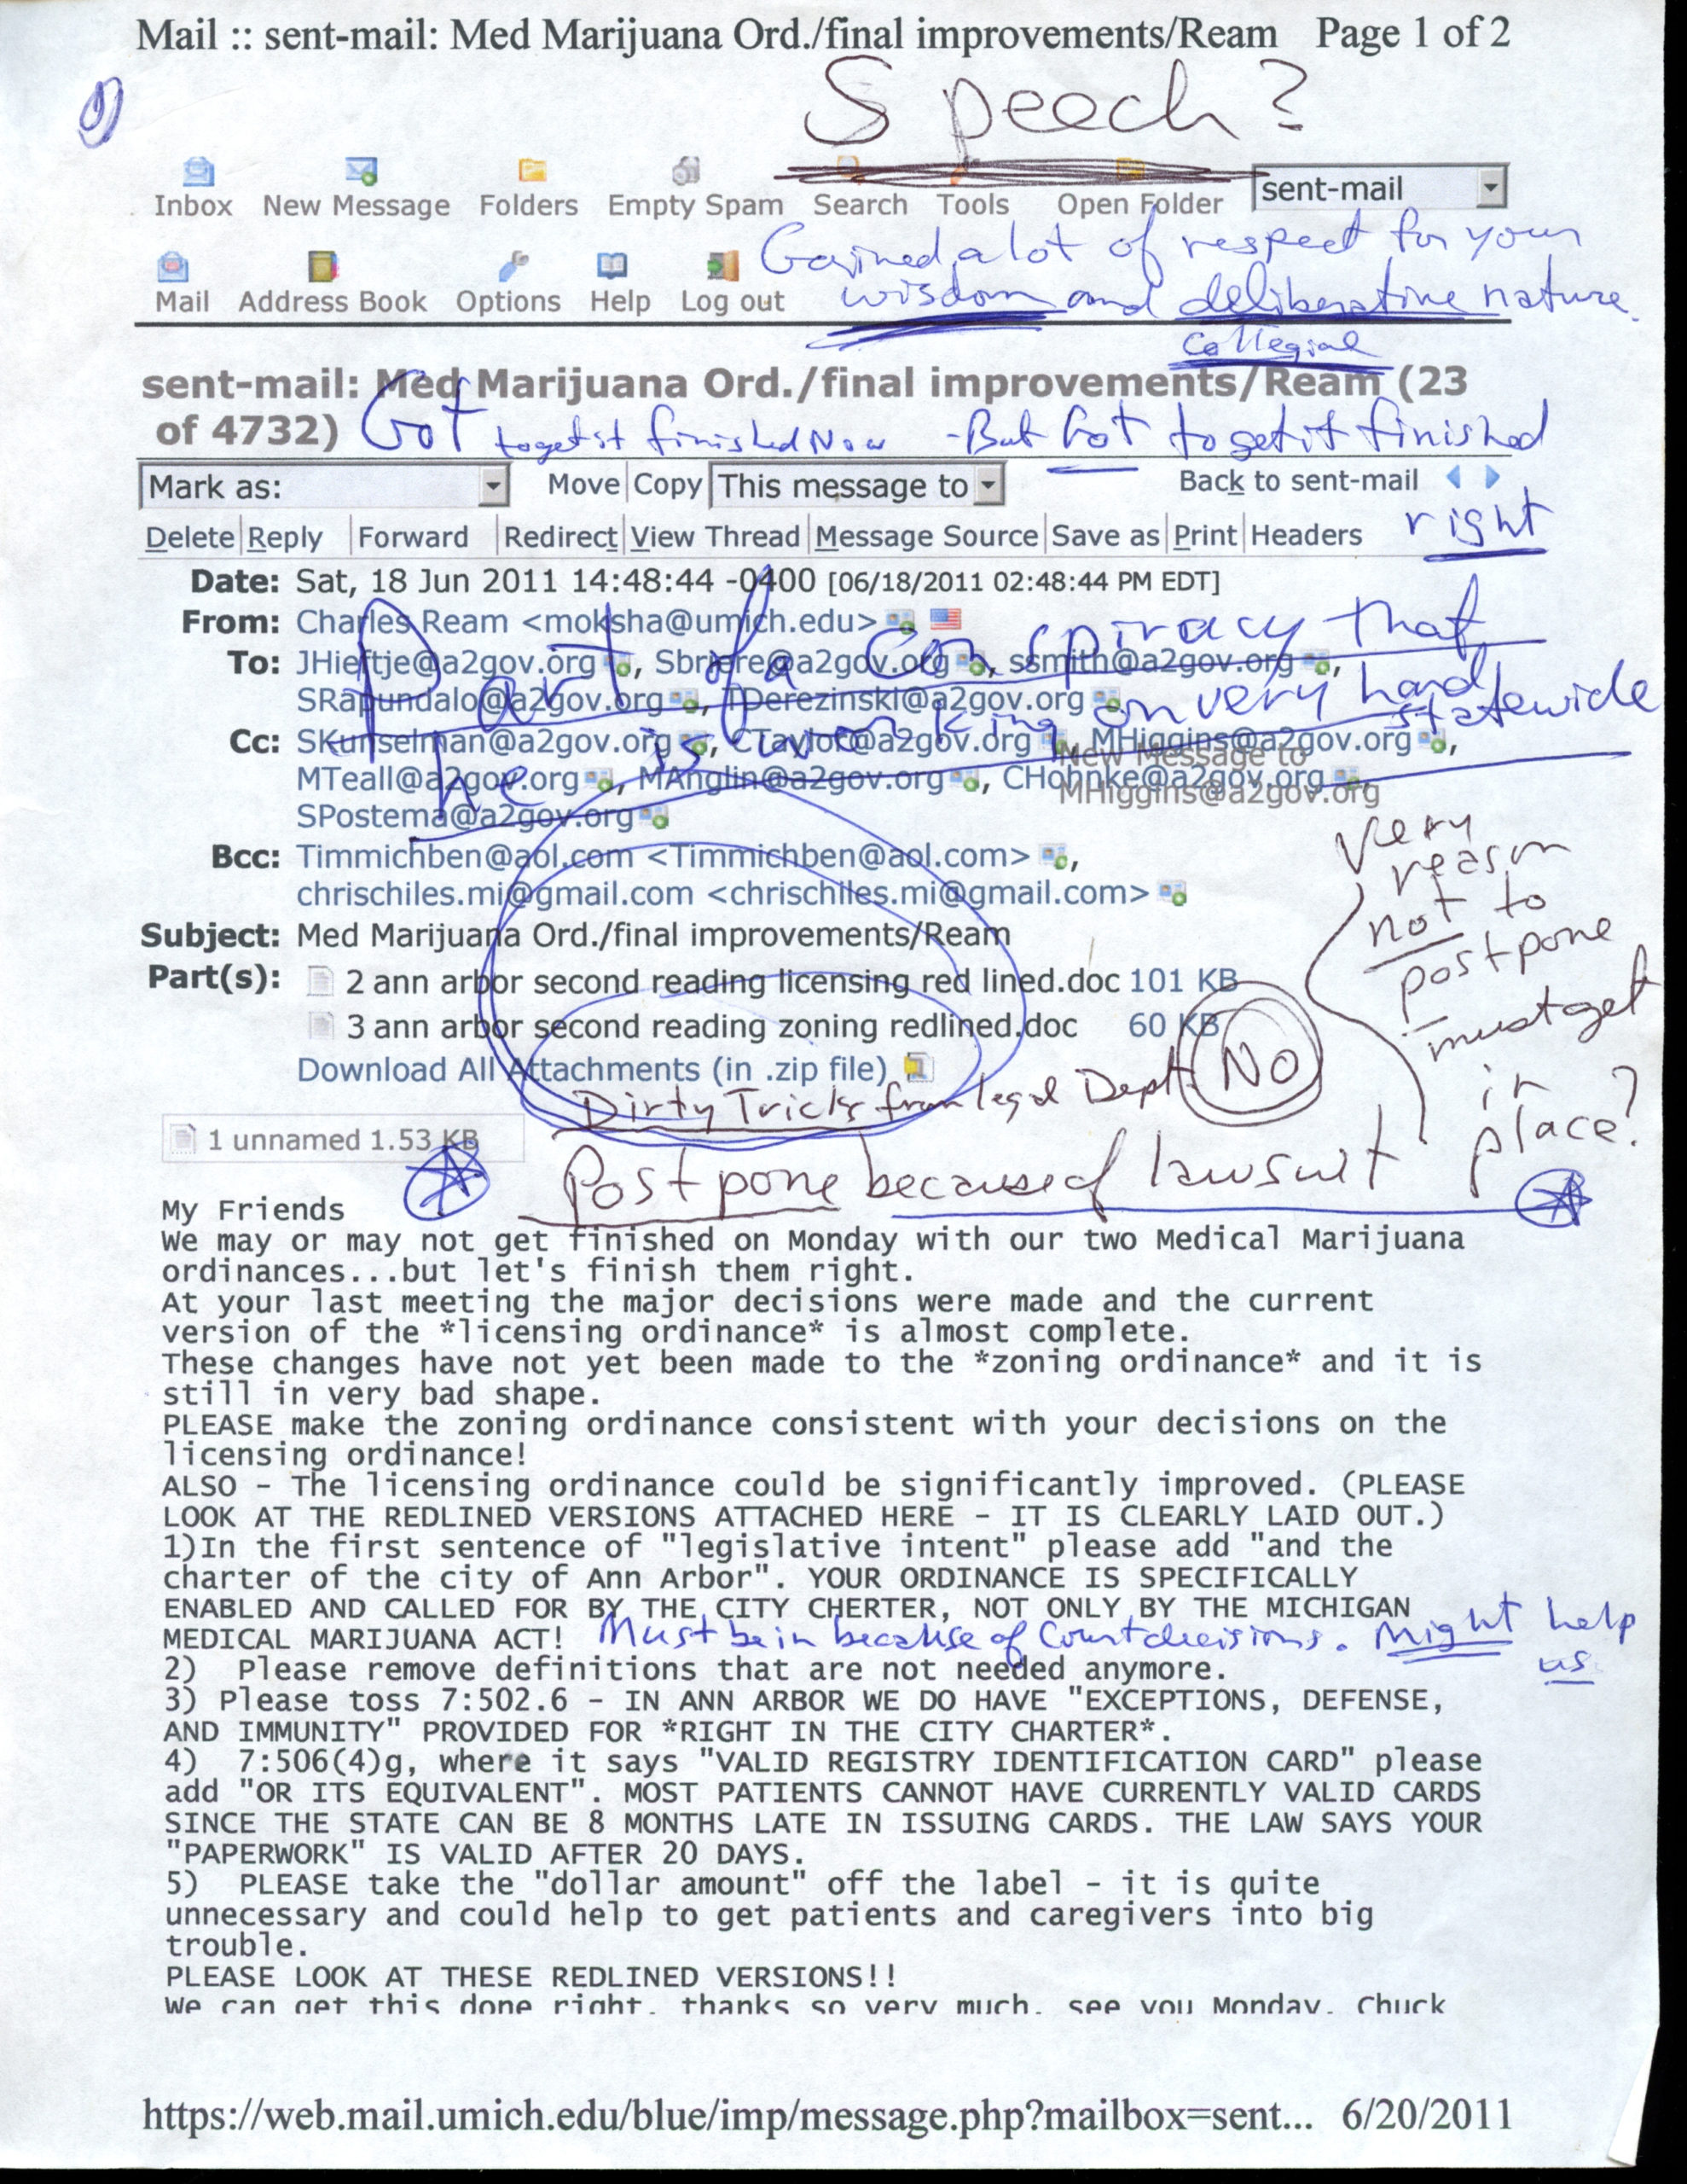 Mail :: sent-mail: Med Marijuana Ord./final improvements/Ream Page 1 of 2
Speech?
Inbox New Message Folders Empty Spam Search Tools Open Folder sent-mail
Gained a lot of respect for your
Mail Address Book Options Help Log out
wisdom and deliberative nature.
collegial
sent-mail: Med Marijuana Ord./final improvements/Ream (23
of 4732)
Got to get it finished Now - But Got to get it finished
right
Mark as: Move Copy This message to Back to sent-mail
Delete Reply Forward Redirect View Thread Message Source Save as Print Headers
Date: Sat, 18 Jun 2011 14:48:44 -0400 [06/18/2011 02:48:44 PM EDT]
From: Charles Ream <moksha@umich.edu>
Part of a conspiracy that
he is working on very hard
statewide
To: JHieftje@a2gov.org, Sbriere@a2gov.org, ssmith@a2gov.org,
SRapundalo@a2gov.org, TDerezinski@a2gov.org
Cc: SKunselman@a2gov.org, CTaylor@a2gov.org, MHiggins@a2gov.org,
New Message to
MTeall@a2gov.org, MAnglin@a2gov.org, CHohnke@a2gov.org,
MHiggins@a2gov.org
SPostema@a2gov.org
Bcc: Timmichben@aol.com <Timmichben@aol.com>,
chrischiles.mi@gmail.com <chrischiles.mi@gmail.com>
Very
reason
not to
postpone
must get
in
place?
Subject: Med Marijuana Ord./final improvements/Ream
Part(s): 2 ann arbor second reading licensing red lined.doc 101 KB
3 ann arbor second reading zoning redlined.doc 60 KB
Download All Attachments (in .zip file)
Dirty Tricks from legal Dept. NO
1 unnamed 1.53 KB
Postpone because of lawsuit
My Friends
We may or may not get finished on Monday with our two Medical Marijuana
ordinances...but let's finish them right.
At your last meeting the major decisions were made and the current
version of the *licensing ordinance* is almost complete.
These changes have not yet been made to the *zoning ordinance* and it is
still in very bad shape.
PLEASE make the zoning ordinance consistent with your decisions on the
licensing ordinance!
ALSO - The licensing ordinance could be significantly improved. (PLEASE
LOOK AT THE REDLINED VERSIONS ATTACHED HERE - IT IS CLEARLY LAID OUT.)
1)In the first sentence of "legislative intent" please add "and the
charter of the city of Ann Arbor". YOUR ORDINANCE IS SPECIFICALLY
ENABLED AND CALLED FOR BY THE CITY CHERTER, NOT ONLY BY THE MICHIGAN
MEDICAL MARIJUANA ACT! Must be in because of Court decisions. Might help
us
2) Please remove definitions that are not needed anymore.
3) Please toss 7:502.6 - IN ANN ARBOR WE DO HAVE "EXCEPTIONS, DEFENSE,
AND IMMUNITY" PROVIDED FOR *RIGHT IN THE CITY CHARTER*.
4) 7:506(4)g, where it says "VALID REGISTRY IDENTIFICATION CARD" please
add "OR ITS EQUIVALENT". MOST PATIENTS CANNOT HAVE CURRENTLY VALID CARDS
SINCE THE STATE CAN BE 8 MONTHS LATE IN ISSUING CARDS. THE LAW SAYS YOUR
"PAPERWORK" IS VALID AFTER 20 DAYS.
5) PLEASE take the "dollar amount" off the label - it is quite
unnecessary and could help to get patients and caregivers into big
trouble.
PLEASE LOOK AT THESE REDLINED VERSIONS!!
We can get this done right. thanks so very much. see you Monday. Chuck
https://web.mail.umich.edu/blue/imp/message.php?mailbox=sent... 6/20/2011